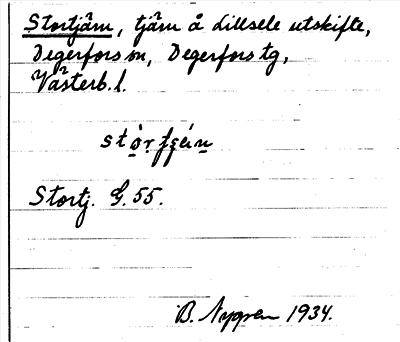 Stortjärn, tjärn å Lillsele utskifte,
Degerfors sn, Degerfors tg,
Västerb. l.
Stortj. G. 55.
B. Nygren 1934.